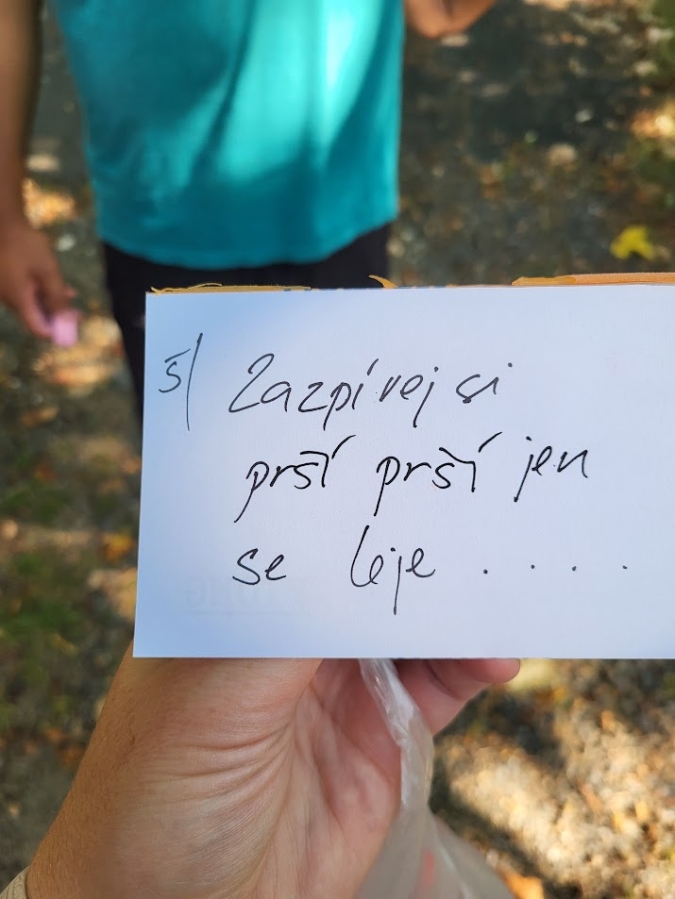 5) Zazpívej si
prší prší jen
se leje .....